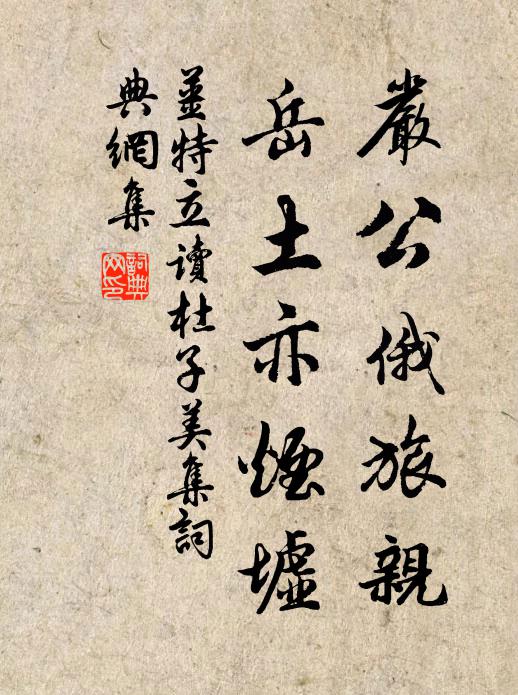 嚴公俄旅親
岳土亦煙墟
姜特立讀杜子美集詞
典網集
詞典
网印